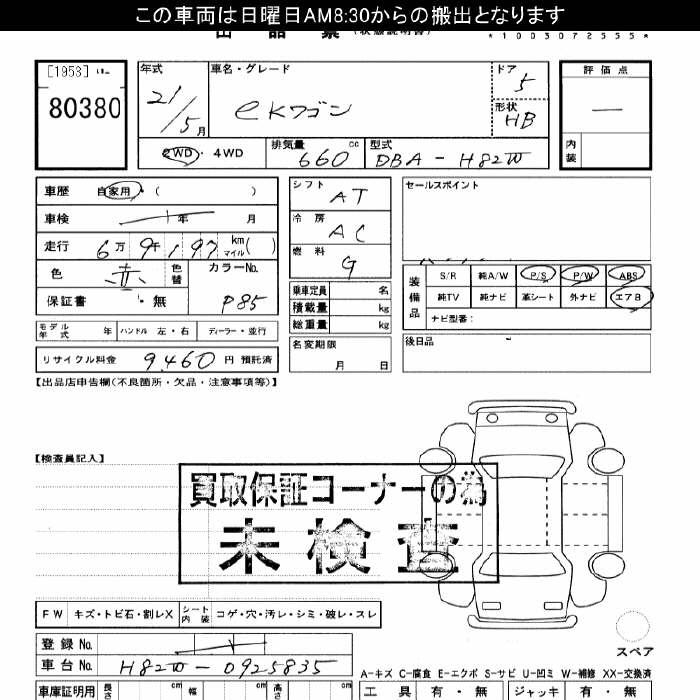 この車両は日曜日AM8:30からの搬出となります
出品票 (状態説明書) *1003072555*
[1953]
80380
年式 21/5月
車名・グレード eKワゴン
ドア 5
形状 HB
評価点 —
内装
2WD・4WD
排気量 660 cc
型式 DBA-H82W
車歴 自家用・( )
車検 年 月
走行 6万9千197 km マイル( )
色 赤 色替
カラーNo. P85
保証書 ・無
モデル年式 年 ハンドル 左・右 ディーラー・並行
リサイクル料金 9,460 円 預託済
シフト AT
冷房 AC
燃料 G
乗車定員 名
積載量 kg
総重量 kg
名変期限 月 日
セールスポイント
装備品 S/R 純A/W P/S P/W ABS
純TV 純ナビ 革シート 外ナビ エアB
ナビ型番:
後日品
【出品店申告欄(不良箇所・欠品・注意事項等)】
【検査員記入】
買取保証コーナーの為
未検査
FW キズ・トビ石・割レX シート内装 コゲ・穴・汚レ・シミ・破レ・スレ
登録No.
車台No. H82W-0925835
スペア
A-キズ C-腐食 E-エクボ S-サビ U-凹ミ W-補修 XX-交換済
車庫証明用 長さ cm 幅 cm 高さ cm
工具 有・無 ジャッキ 有・無